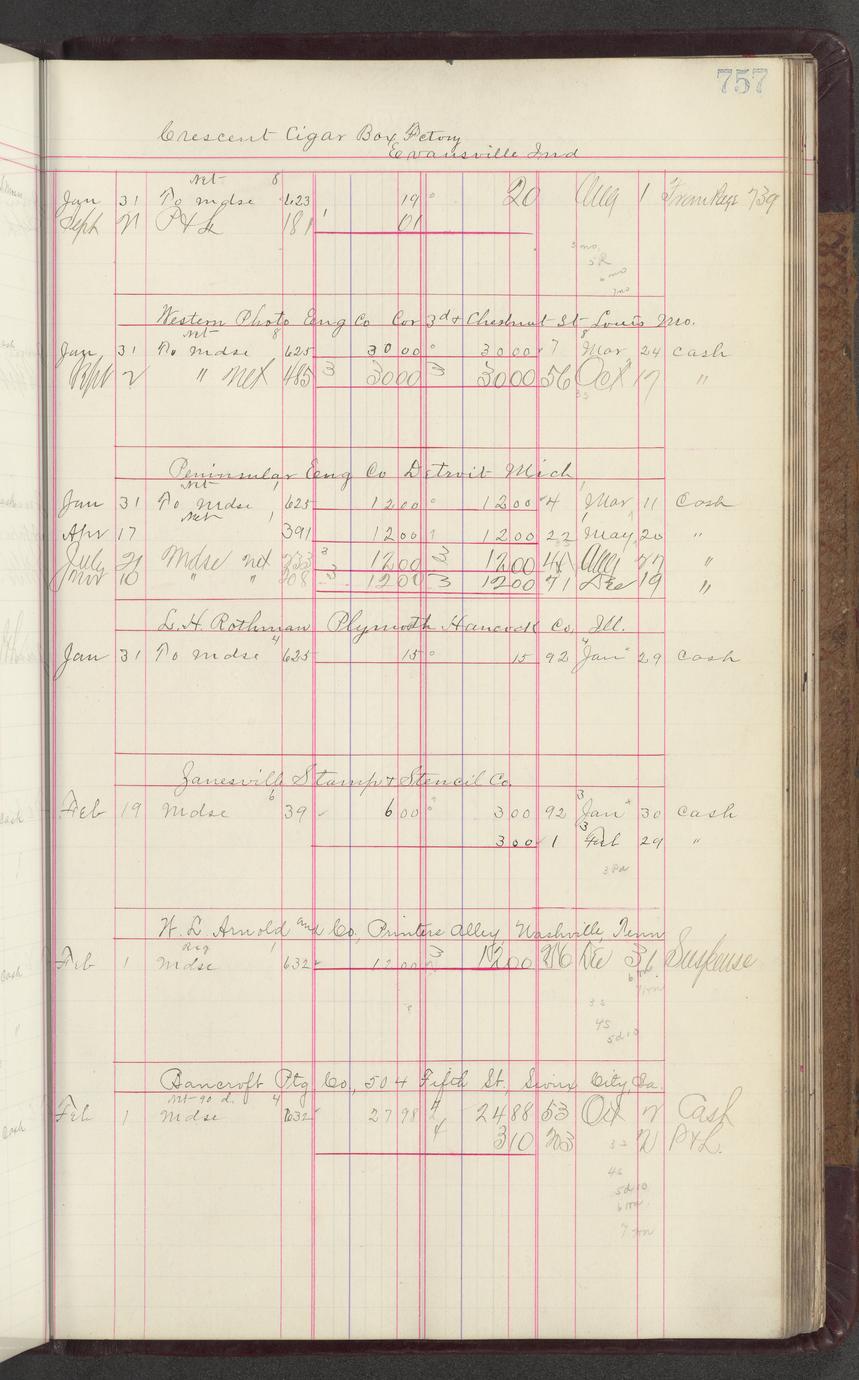 757
Crescent Cigar Box Fctory
Evansville Ind
Net 8
Jan 31 To mdse 623 19 20 Aug 1 From Page 739
Sept 21 P & L 181 01
3 mo.
5 R
6 mo
7 mo
Western Photo Eng Co Cor 3d & Chestnut St Louis Mo.
Net 8 8
Jan 31 To mdse 625 3000 3000 7 Mar 24 cash
Sept 2 " net 485 3 3000 3 3000 56 Oct 17 "
Peninsular Eng Co Detroit Mich
Net 1 1
Jan 31 To mdse 625 1200 1200 4 Mar 11 Cash
Net 1
Apr 17 391 1200 1 1200 22 May 20 "
July 21 Mdse net 233 3 1200 3 1200 Aug 27 "
Nov 10 " " 208 3 1200 3 1200 71 Dec 19 "
L. H. Rothman Plymoth Hancock Co, Ill.
4 4
Jan 31 To mdse 625 15 15 92 Jan 29 Cash
Zanesville Stamp & Stencil Co.
6 3
Feb 19 Mdse 39 600 300 92 Jan 30 Cash
3
300 1 Feb 29 "
W. L. Arnold and Co, Printers Alley Nashville Tenn
1 3
Feb 1 mdse 632 1200 1200 216 Dec 31 Suspense
3 s
4s
5d10
Bancroft Ptg Co, 504 Fifth St, Sioux City Ia.
Nt 90 d. 4
Feb 1 mdse 632 2798 4 2488 53 Oct 2 Cash
4 310 203 2 P&L.
4s
5d10
6 mo
7 mo